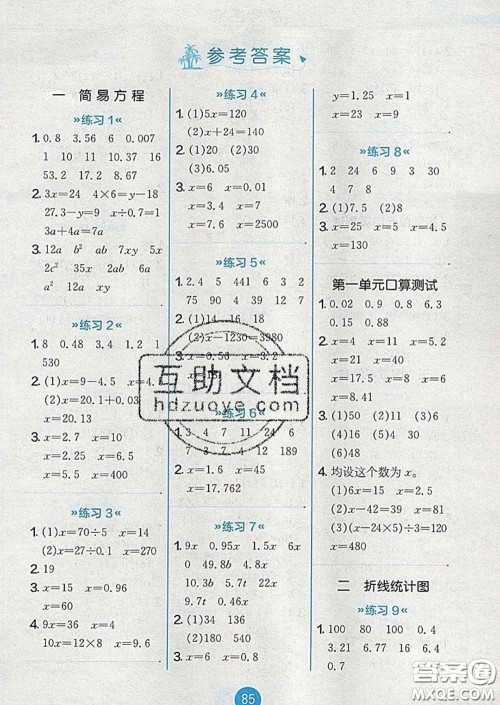 参考答案
一 简易方程
»练习1«
1. 0.8 3.56 6 0.007
1 10 11 10.37 0.2
53.2 17.2 8.67
2. 3x=24 4×6=y−18
27.3−y=9 x÷0.7=1
3a+4a=7a
3. 12a b² ab 7xy 5x
5b 2c² 12ab 7a
4. x=51 x=15
»练习2«
1. 8 0.48 3.4 1.2 1
530
2. (1)x=9−4.5 x=4.5
(2)x=20.1+0.03
x=20.13
3. x=2.7 x=10
x=5.5 x=400
»练习3«
1. (1)x=70÷5 x=14
(2)x=27÷0.1 x=270
2. 19
3. x=15 x=0.6
x=60
4. x=44 x=9
10x=12×8 x=9.6
»练习4«
1. (1)5x=120
(2)x+24=140
2. (1)20 (2)30
(3)6.05
3. x=6 x=0.01
x=3.4 x=0.7
x=7.6 x=2500
»练习5«
1. 2.4 5 441 6 3 2
75 90 4 39 12 7
2. (1)14 16 18
(2)x−1230=3980
3. x=0.56 x=3.2
»练习6«
1. 3 4 7 11 24 6
7 7 12 24 189
2. x=1.6 x=45
x=17.762
»练习7«
1. 9x 0.95x 1.5x 6x
0 49.8b 4x
10.3b 5.7t x
9.7t 0.46x
2. (1)34 136
(2)180 540
3. x=6 x=0.8
y=1.25 x=1
x=23 x=9
»练习8«
1. 2 24 6 6 0.9 30
4 7 8
2. (1)7.5 (2)8
3. x=25 x=5 x=4.5
x=130
第一单元口算测试
1. 0.02 0.9 0.8 6.3
0.15 0.8
2. x=4 x=1 x=0.1
x=17.5 x=8.75
x=8.3
3. (1)50 (2)11 (3)6
(6)48
4. 均设这个数为x。
(1)6x=2.4 x=0.4
(2)x−42=39 x=81
(3)(x−24×5)÷3=120
x=480
二 折线统计图
»练习9«
1. 100 80 100 0.4
3.21 6.77 1.6 1.4
0.7
互助文档
hdzuoye.com
85
答案圈
MXQE.COM